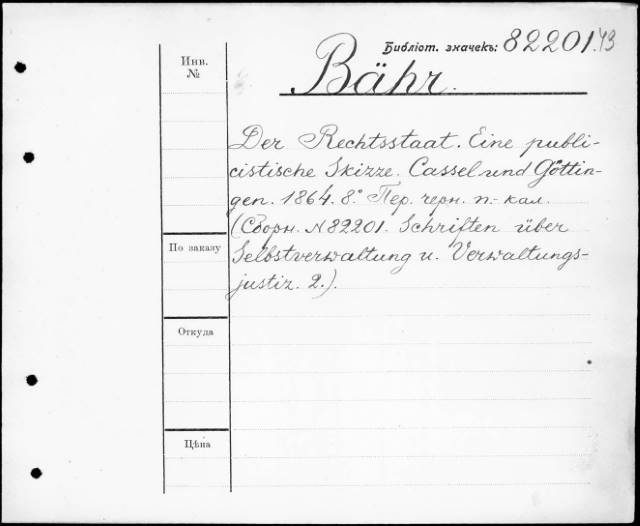 Библіот. значекъ: 82201.43
Инв.
№
Bähr.
Der Rechtsstaat. Eine publi-
cistische Skizze. Cassel und Göttin-
gen. 1864. 8.° Пер. черн. п.-кал.
(Сборн. N 82201. Schriften über
Selbstverwaltung u. Verwaltungs-
justiz. 2.).
По заказу
Откуда
Цѣна